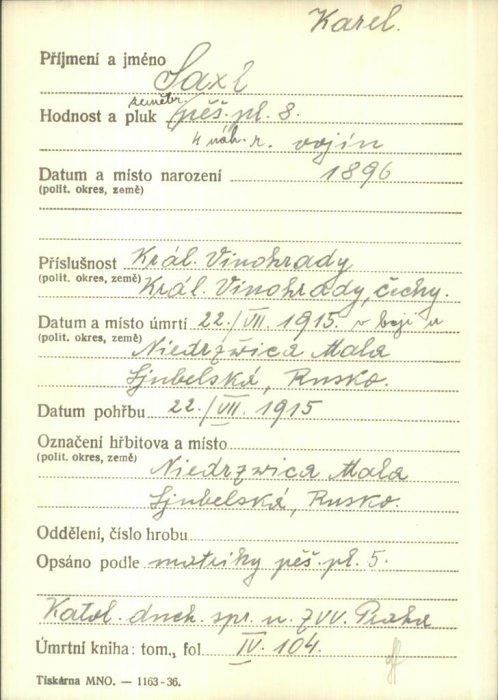 Karel.
Příjmení a jméno Saxl
zeměbr.
Hodnost a pluk pěš. pl. 8.
4 náh. r. vojín
Datum a místo narození 1896
(polit. okres, země)
Příslušnost Král. Vinohrady
(polit. okres, země) Král. Vinohrady, Čechy.
Datum a místo úmrtí 22./VII. 1915. v boji u
(polit. okres, země) Niedrzwica Mala
Ljubelská, Rusko.
Datum pohřbu 22./VII. 1915
Označení hřbitova a místo
(polit. okres, země) Niedrzwica Mala
Ljubelská, Rusko.
Oddělení, číslo hrobu
Opsáno podle matriky pěš. pl. 5.
Katol. duch. spr. u ZVV. Praha
Úmrtní kniha: tom., fol. IV. 104.
Tiskárna MNO. — 1163-36.